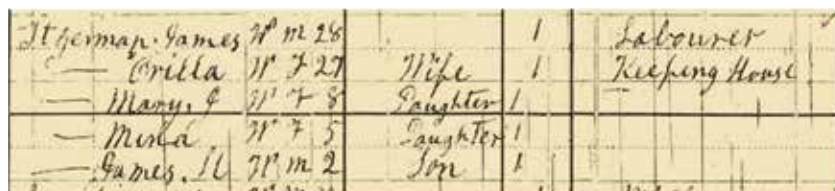 St germap. James W M 28 1 Labourer
— Orilla W F 27 Wife 1 Keeping House
— Mary. J W F 8 Daughter 1
— Mina W F 5 Daughter 1
— James. W M 2 Son 1